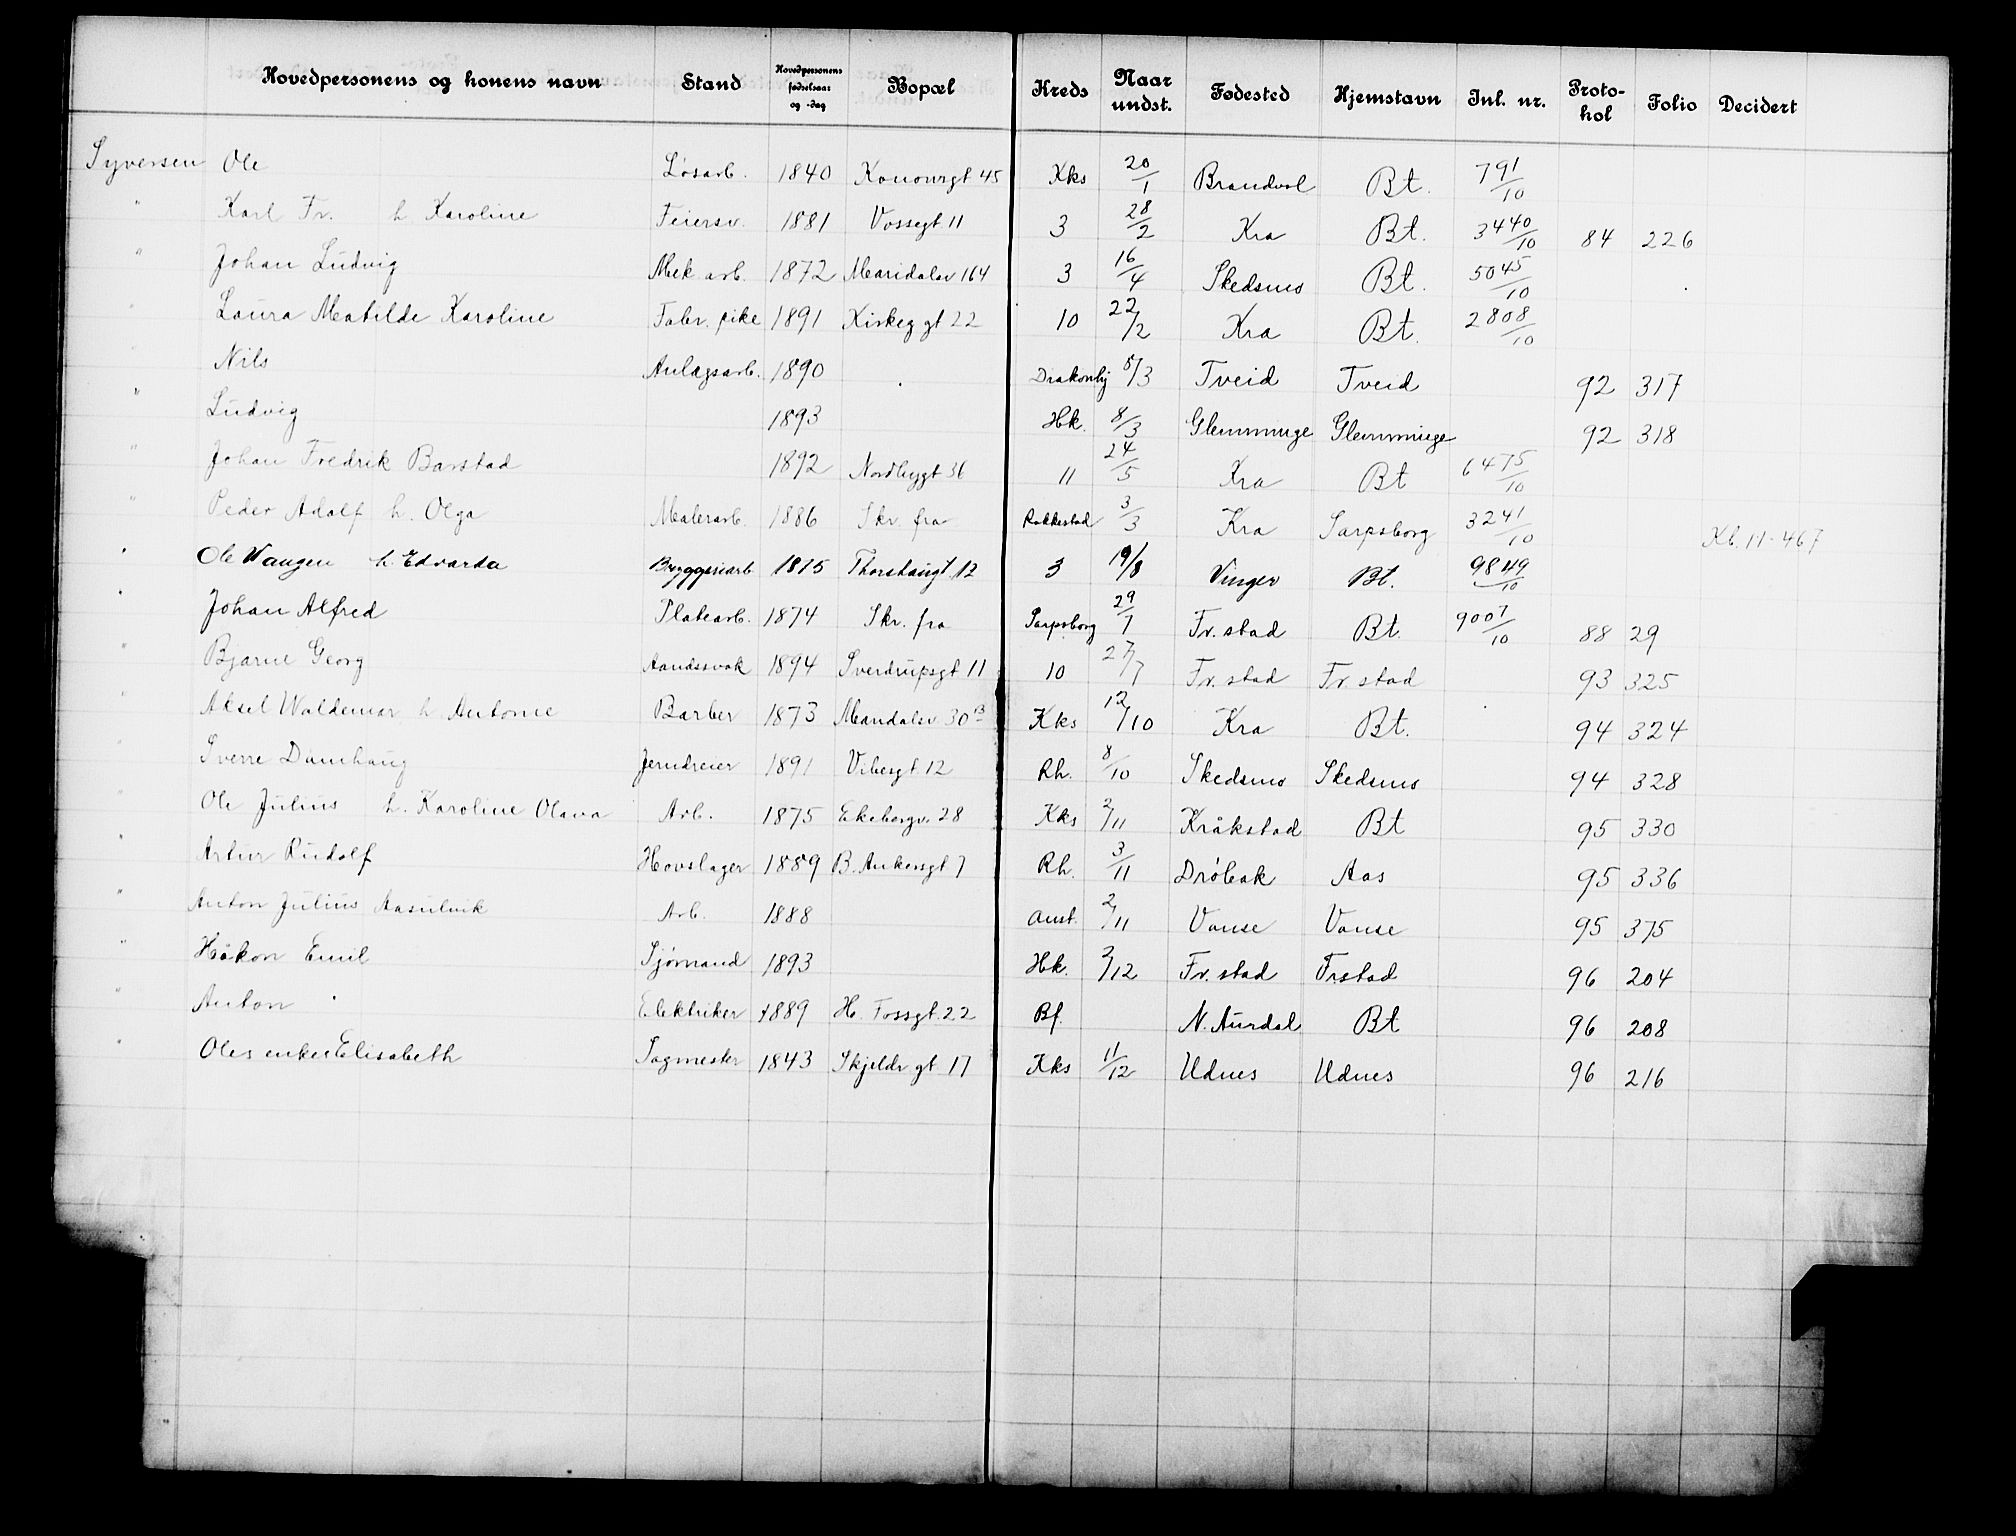 Hovedpersonens og konens navn Stand Hovedpersonens fødselsaar og -dag Bopæl Kreds Naar undst. Fødested Hjemstavn Jnl. nr. Protokol Folio Decidert
Syversen Ole Løsarb. 1840 Konowsgt 45 Kks 20/1 Brandvol Bt. 791/10
" Karl Fr. h. Karoline Feiersv. 1881 Vossegt 11 3 28/2 Kra Bt. 3440/10 84 226
" Johan Ludvig Mek arb. 1872 Maridalsv 164 3 16/4 Skedsmo Bt. 5045/10
" Laura Matilde Karoline Fabr. pike 1891 Kirkeg gt 22 10 22/2 Kra Bt. 2808/10
" Nils Anlægsarb. 1890 5/3 Tveid Tveid 92 317
" Ludvig 1893 Hk. 8/3 Glemminge Glemminge 92 318
" Johan Fredrik Barstad 1892 Nordbygt 36 11 24/5 Kra Bt 6475/10
" Peder Adolf h. Olga Malerarb. 1886 Skr. fra Rakkestad 3/3 Kra Sarpsborg 3241/10 Kb. 11-467
" Ole Wangen h. Edvarda Bryggeriarb 1875 Thorshaugt. 12 3 19/8 Vinger Bt. 9849/10
" Johan Alfred Platearb. 1874 Skr. fra Sarpsborg 29/7 Fr. stad Bt. 9007/10 88 29
" Bjarne Georg Aandssvak 1894 Sverdrupsgt 11 10 27/7 Fr. stad Fr. stad 93 325
" Aksel Waldemar h Antonie Barber 1873 Mandalsv 30 B Kks 12/10 Kra Bt. 94 324
" Sverre Damhaug Jerndreier 1891 Vibesgt 12 Rh. 8/10 Skedsmo Skedsmo 94 328
" Ole Julius h. Karoline Olava Arb. 1875 Ekebergv. 28 Kks 2/11 Kråkstad Bt 95 330
" Artur Rudolf Hovslager 1889 B. Ankersgt 7 Rh. 3/11 Drøbak Aas 95 336
" Anton Julius Aasulvik Arb. 1888 Aust. 2/11 Vanse Vanse 95 375
" Håkon Emil Sjømand 1893 Hk. 2/12 Fr. stad Frstad 96 204
" Anton Elektriker 1889 H. Fossgt. 22 Bf. N. Aurdal Bt 96 208
" Oles enke Elisabeth Sagmester 1843 Skjeldr gt 17 Kks 11/12 Udnes Udnes 96 216